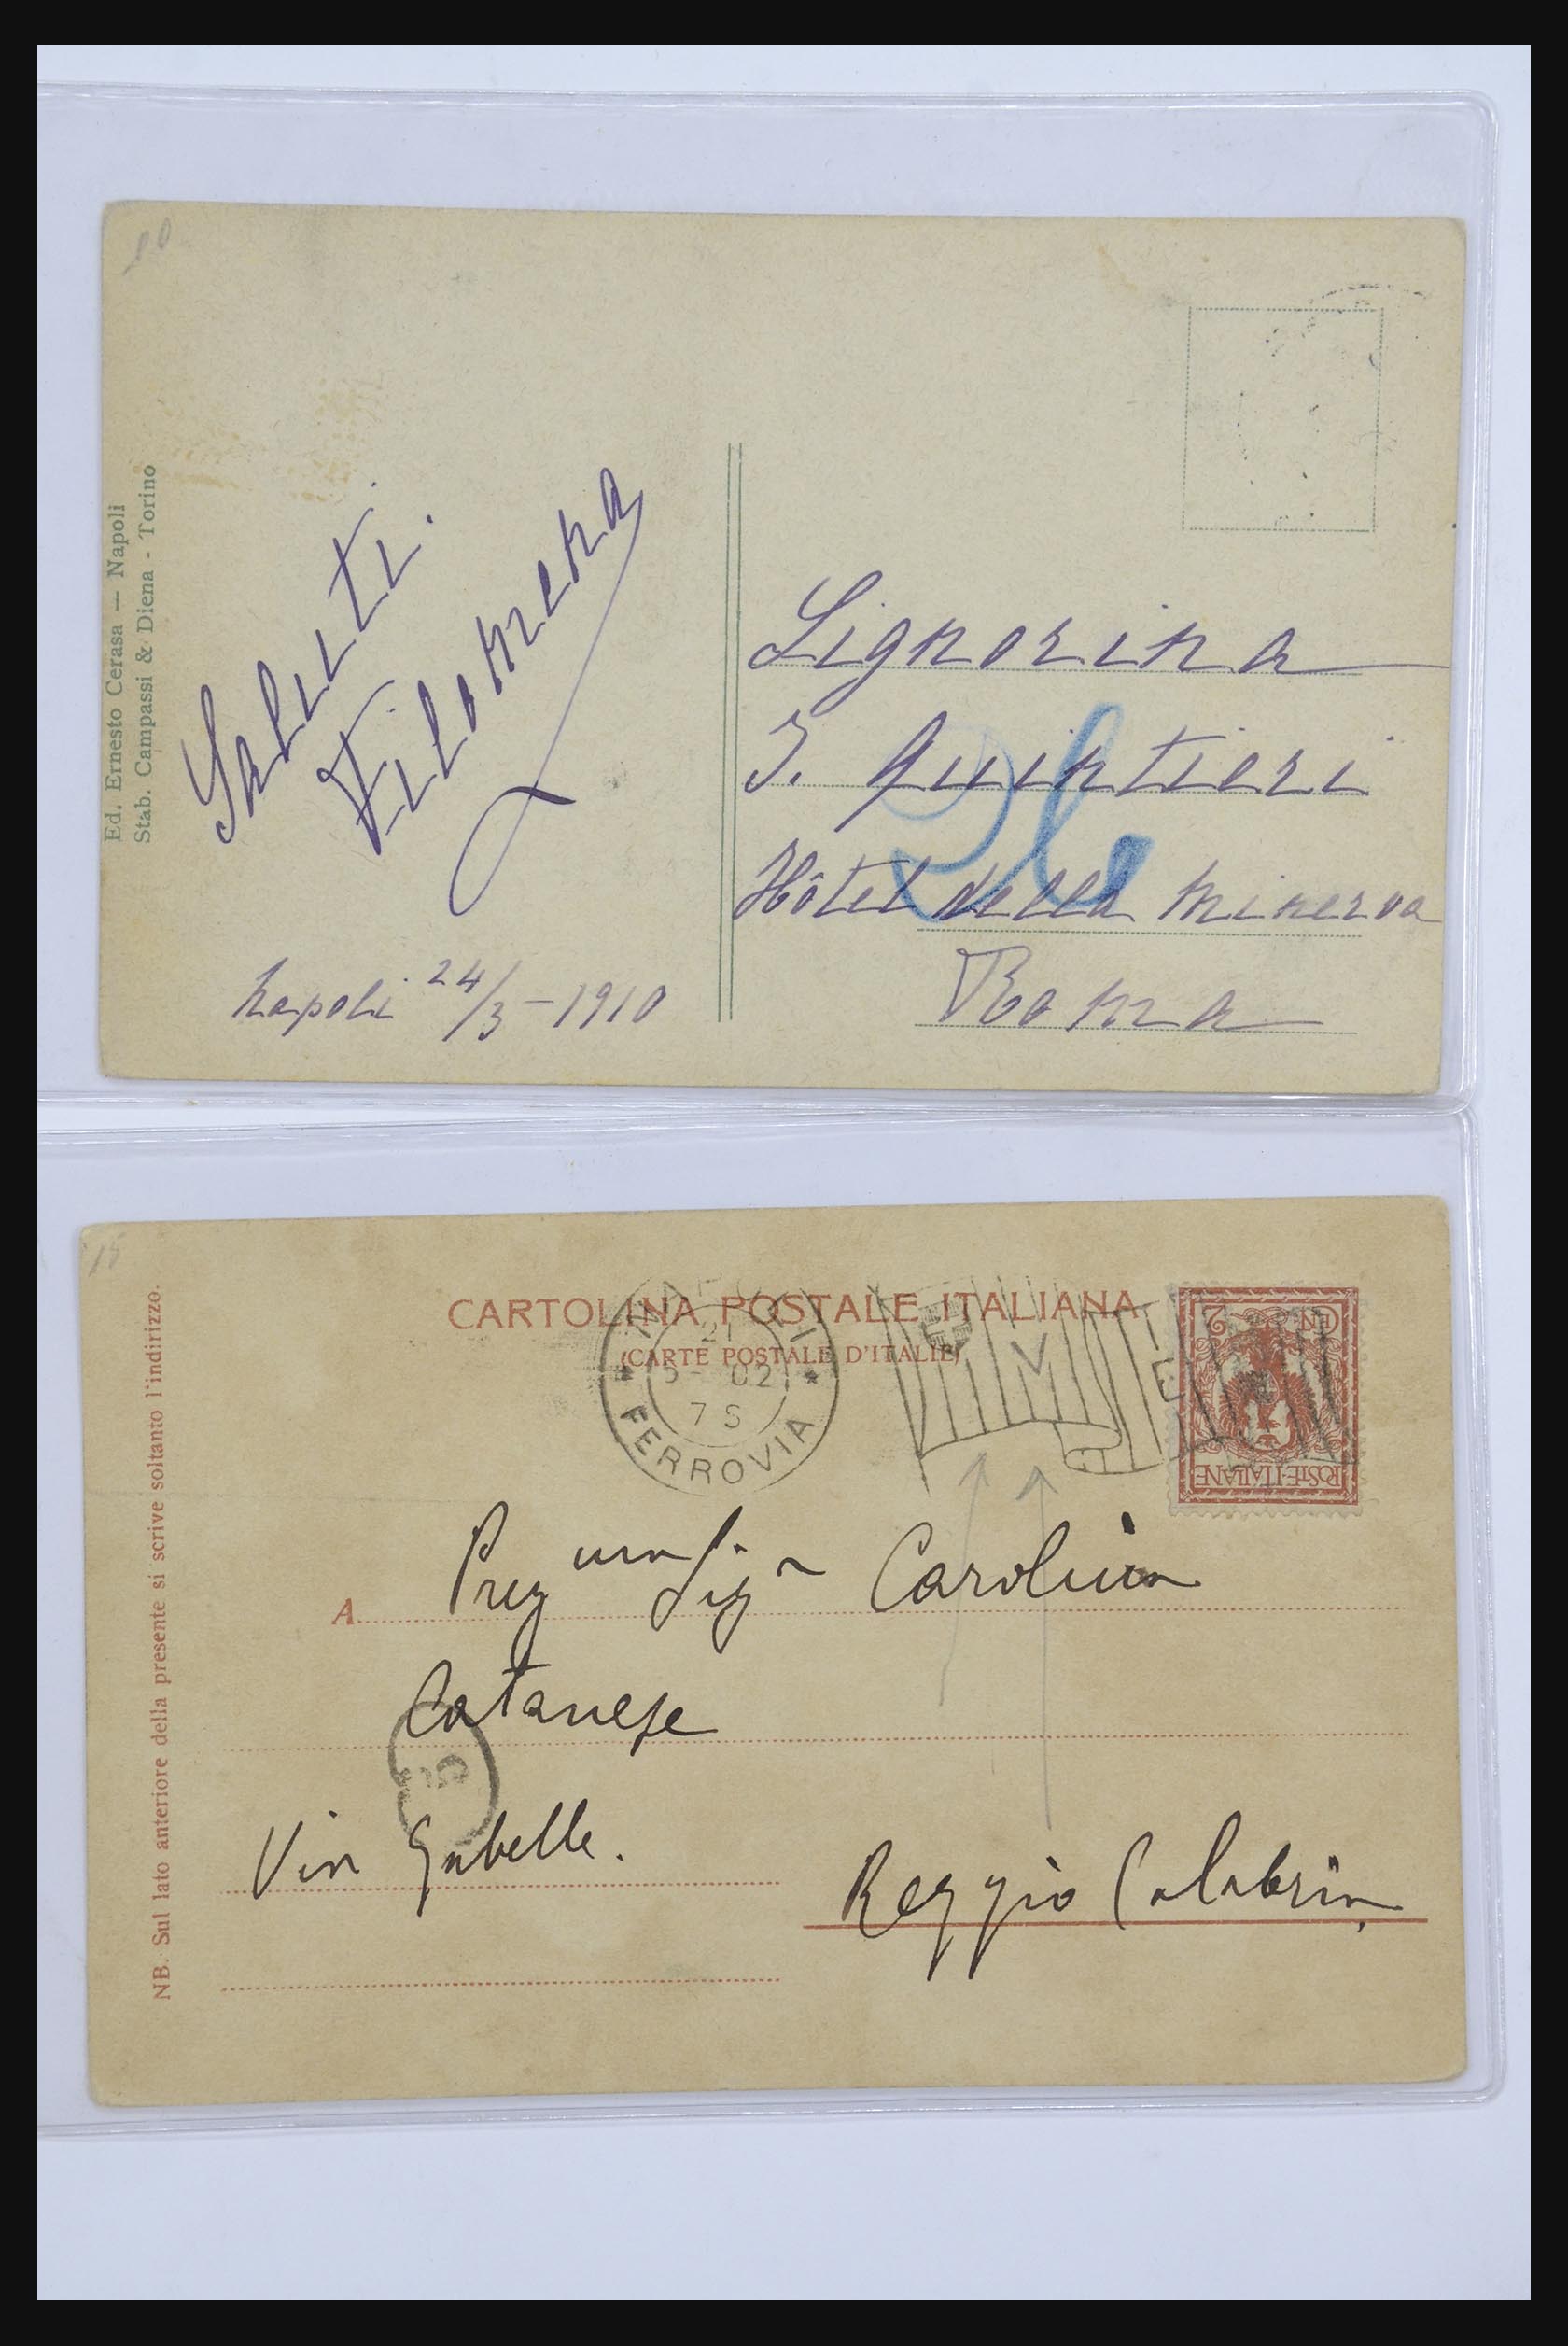 Ed. Ernesto Cerasa — Napoli
Stab. Campassi & Diena - Torino
Saluti.
Filomena
Napoli 24/3-1910
Signorina
I. Quintieri
Hôtel della Minerva
Roma
15
CARTOLINA POSTALE ITALIANA
(CARTE POSTALE D'ITALIE)
NAPOLI
21
5- 02
7 S
FERROVIA
CEN 2
POSTE·ITALIANE
NB. Sul lato anteriore della presente si scrive soltanto l'indirizzo.
A
Prez ma Sig a Carolina
Catanese
Via Gabelle.
Reggio Calabria,